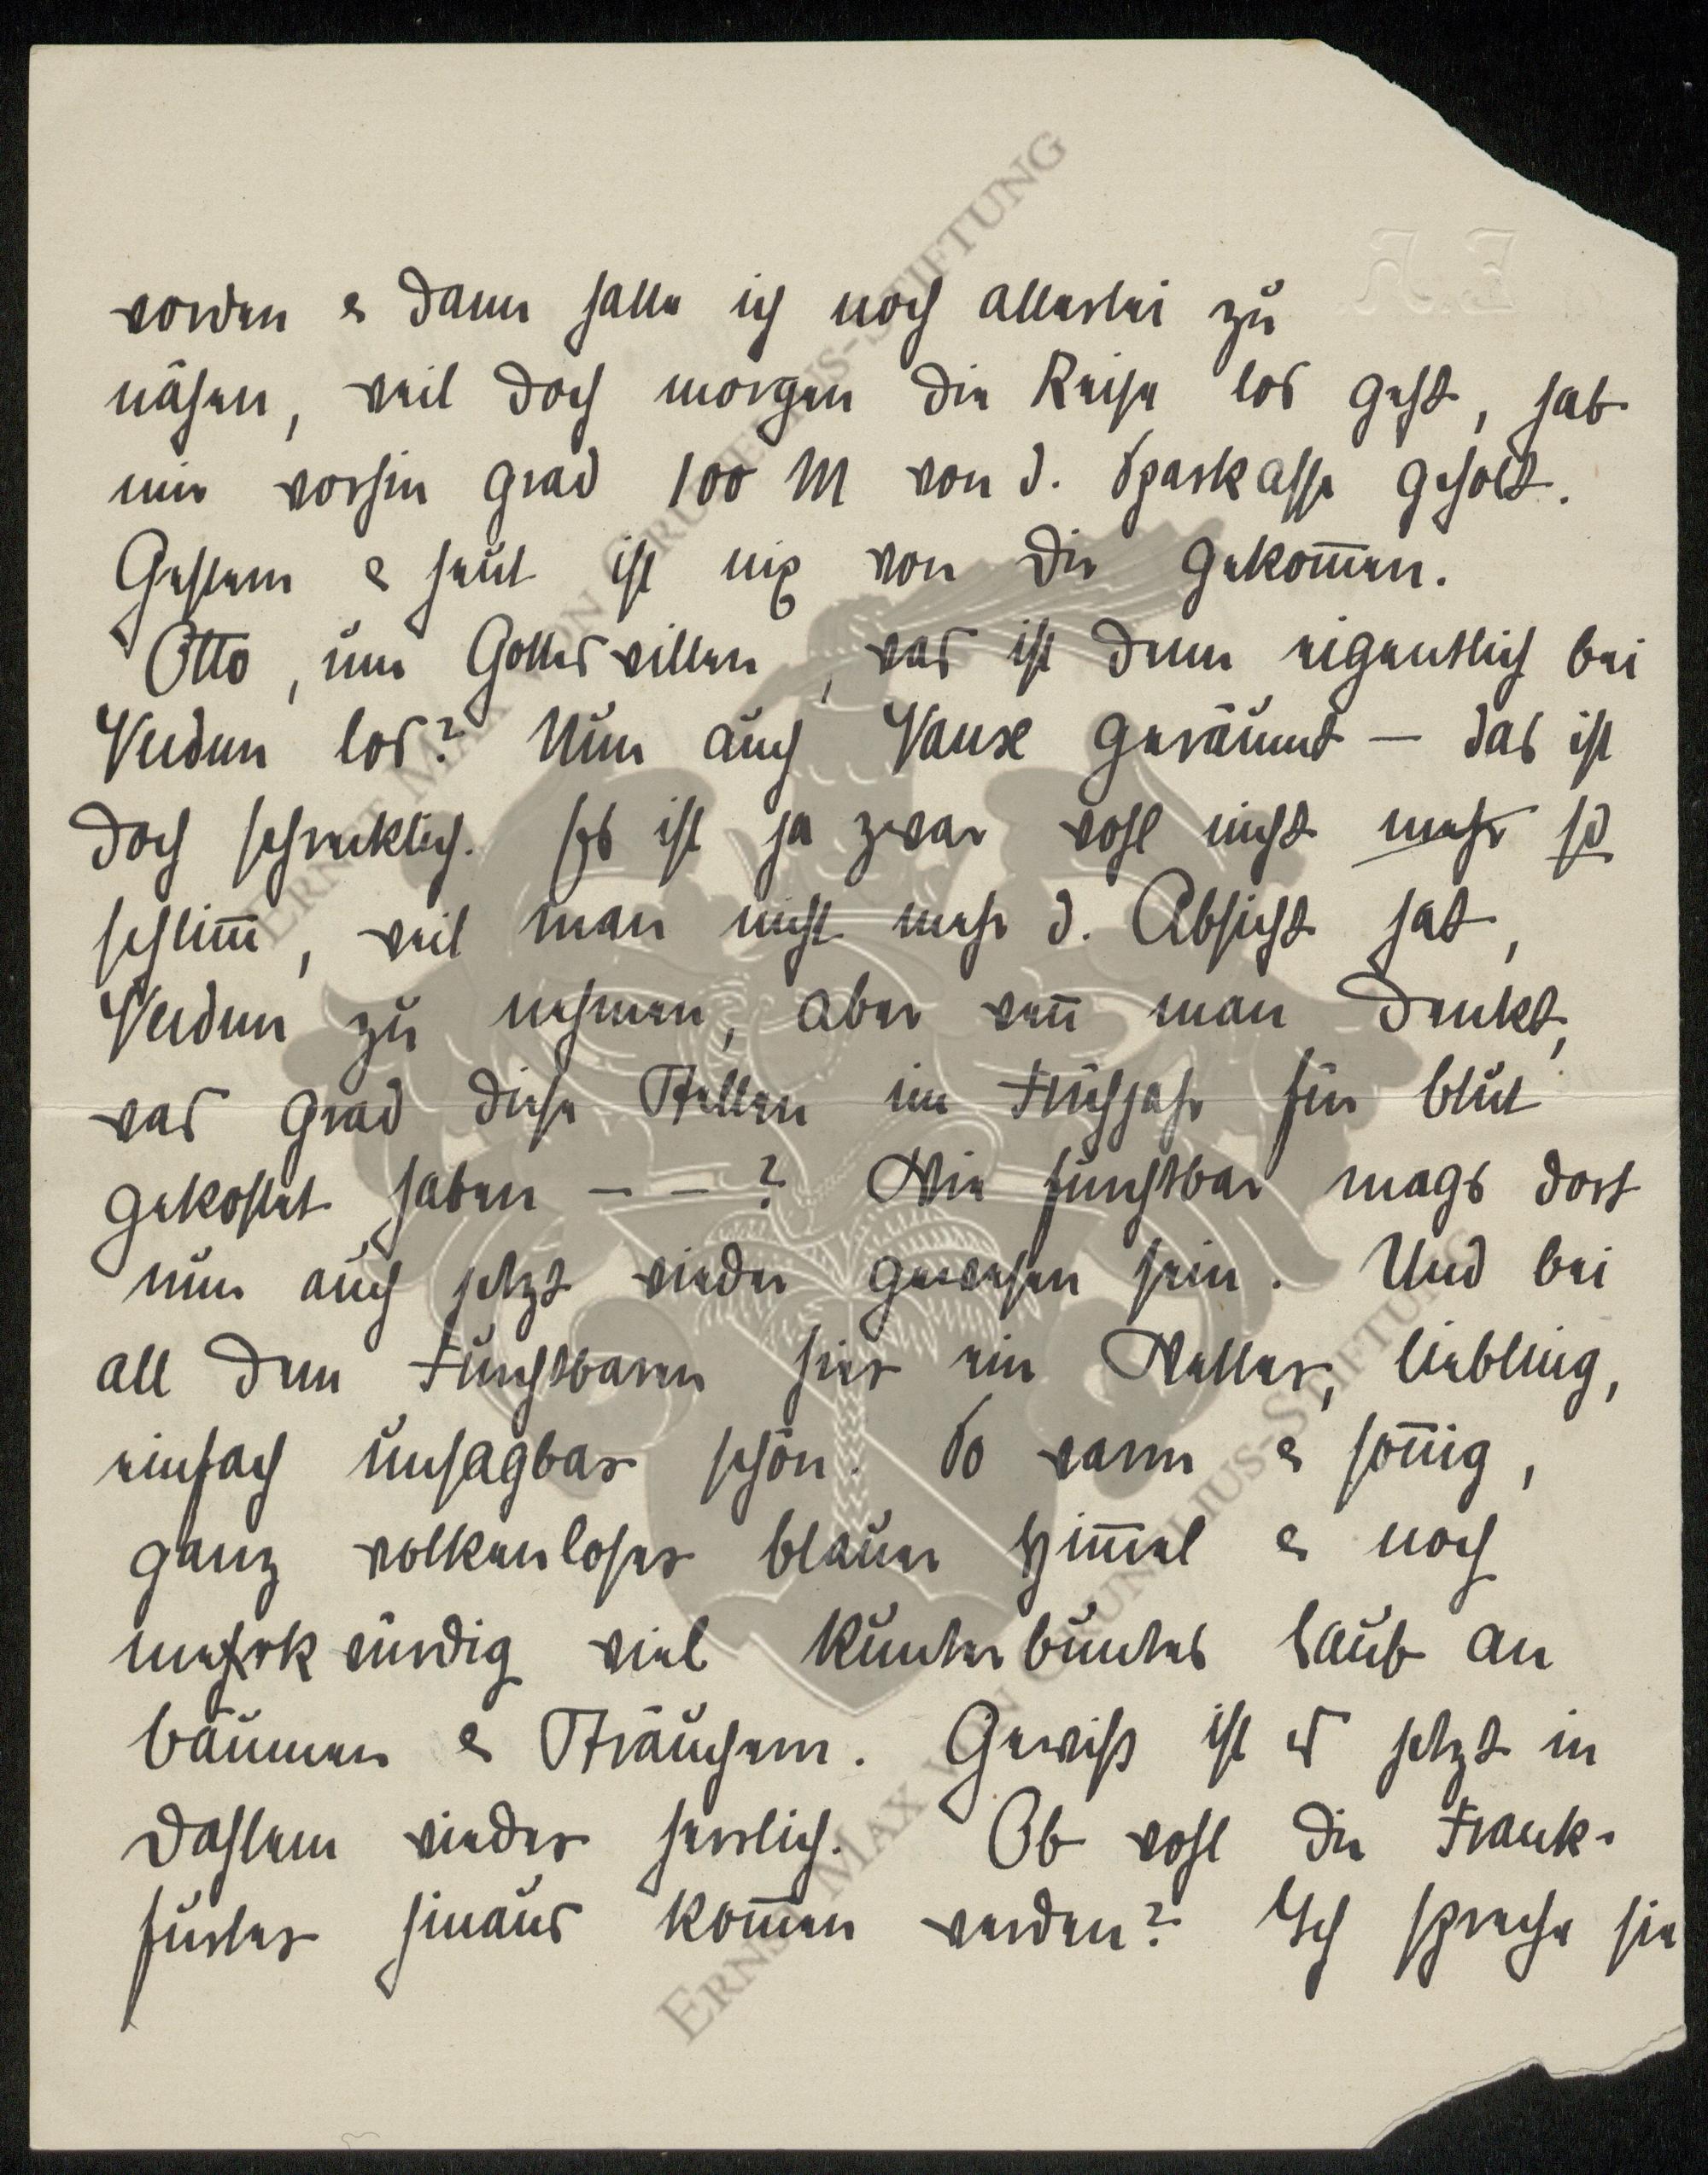 worden & dann hatte ich noch allerlei zu
nähen, weil doch morgen die Reise los geht, hab
mir vorhin grad 100 M von d. Sparkasse geholt.
Gestern & heut ist nix von Dir gekom̅en.
Otto, um Gottes willen, was ist denn eigentlich bei
Verdun los? Nun auch Vaux geräumt — das ist
doch schrecklich. Es ist ja zwar wohl nicht mehr so
schlim̅, weil man nicht mehr d. Absicht hat,
Verdun zu nehmen, aber wen̅ man denkt,
was grad diese Stellen im Frühjahr für Blut
gekostet haben — — ? Wie furchtbar mags dort
nun auch jetzt wieder gewesen sein. Und bei
all dem Furchtbaren hier ein Wetter, Liebling,
einfach unsagbar schön. So warm & son̅ig,
ganz wolkenloser blauer Him̅el & noch
merkwürdig viel kunterbuntes Laub an
Bäumen & Sträuchern. Gewiß ist es jetzt in
Dahlem wieder herrlich. Ob wohl die Frank-
furter hinaus kom̅en werden? Ich spreche sie
E.R
ERNST MAX VON GRUNELIUS-STIFTUNG
ERNST MAX VON GRUNELIUS-STIFTUNG